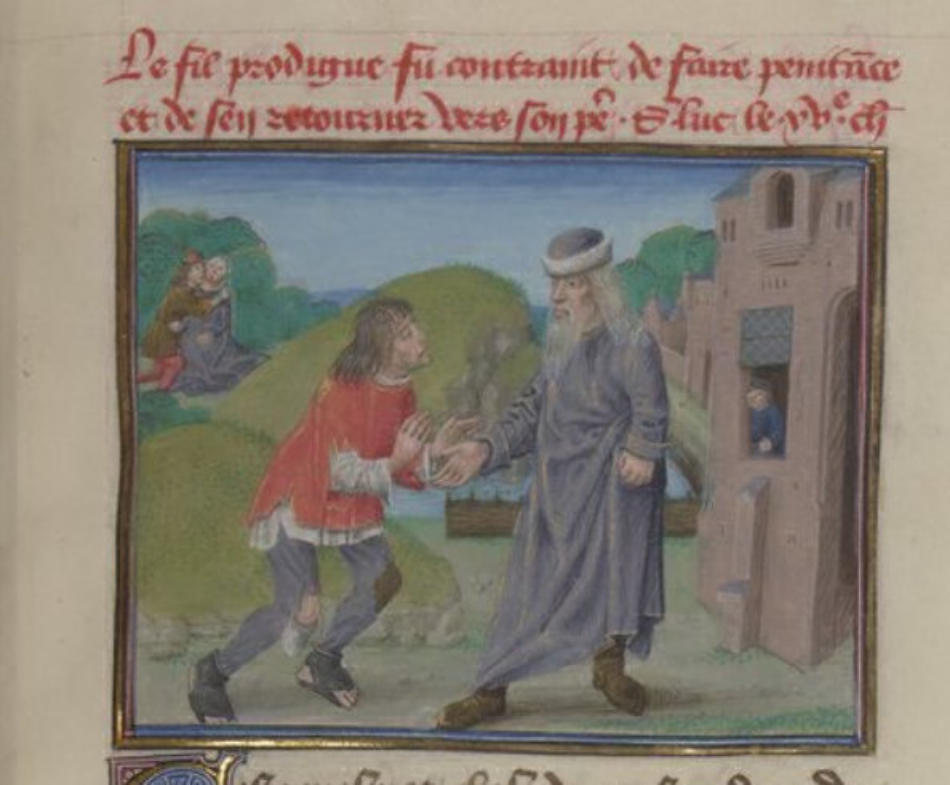 Le fil prodigue fu contraint de faire penitāce
et de seŋ retourner vers soŋ pe᷑ . S luc le xvᵉ. ch